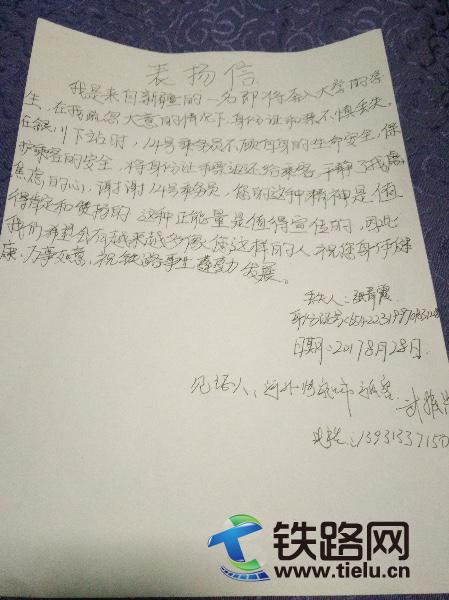 表扬信
我是来自新疆的一名即将步入大学的学
生，在我疏忽大意的情况下，身份证和票不慎丢失。
在银川下站时，14号乘务员不顾自身的生命安全，保
乘客的安全，将身份证和票送还给乘客，平静了我
焦虑的心，谢谢14号乘务员，您的这种精神是值
得肯定和赞扬的 这种正能量是值得宣传的，因此
我们希望会有越来越多像您这样的人 祝您身体健
康，万事如意，祝铁路事业蓬勃发展。
丢失人：张青霞
身份证号
日期：2017 8月28日.
见证人：河北 旅客
电话：1393133715
铁路网
www.tielu.cn